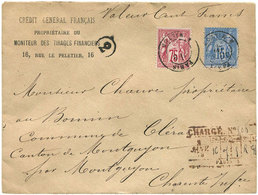 Valeur Cent Francs
CRÉDIT GÉNÉRAL FRANÇAIS
PROPRIÉTAIRE DU
MONITEUR DES TIRAGES FINANCIERS
16, RUE LE PELETIER, 16
75
15
PARIS
Monsieur Chauvre propriétaire
au
Commune de Cléra
CHARGÉ
Canton de Montguyon
par Montguyon
Charente Infre